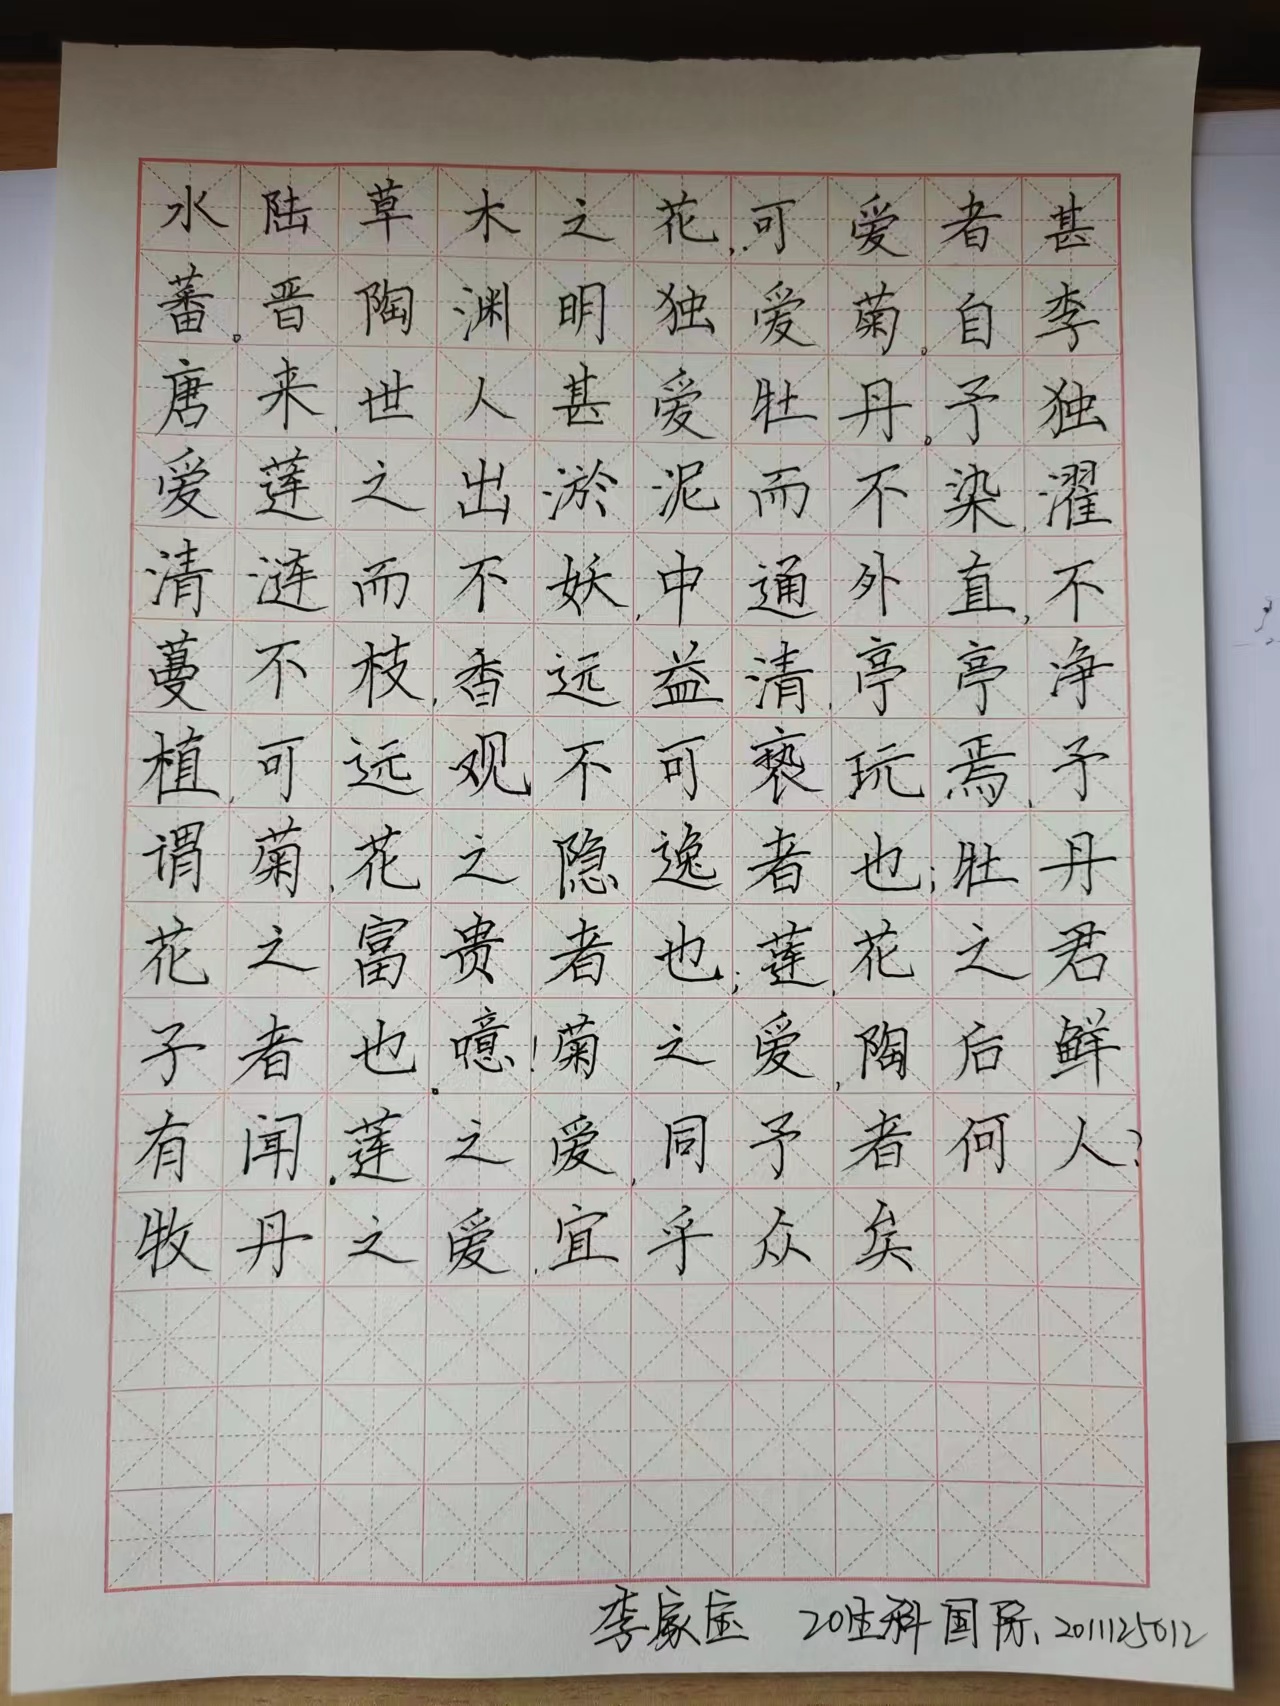 水陆草木之花,可爱者甚
蕃。晋陶渊明独爱菊。自李
唐来,世人甚爱牡丹。予独
爱莲之出淤泥而不染,濯
清涟而不妖,中通外直,不
蔓不枝,香远益清,亭亭净
植,可远观不可亵玩焉,予
谓菊,花之隐逸者也;牡丹
花之富贵者也;莲,花之君
子者也。噫!菊之爱,陶后鲜
有闻。莲之爱,同予者何人?
牧丹之爱,宜乎众矣
李家宝 20生科国际、2011125012